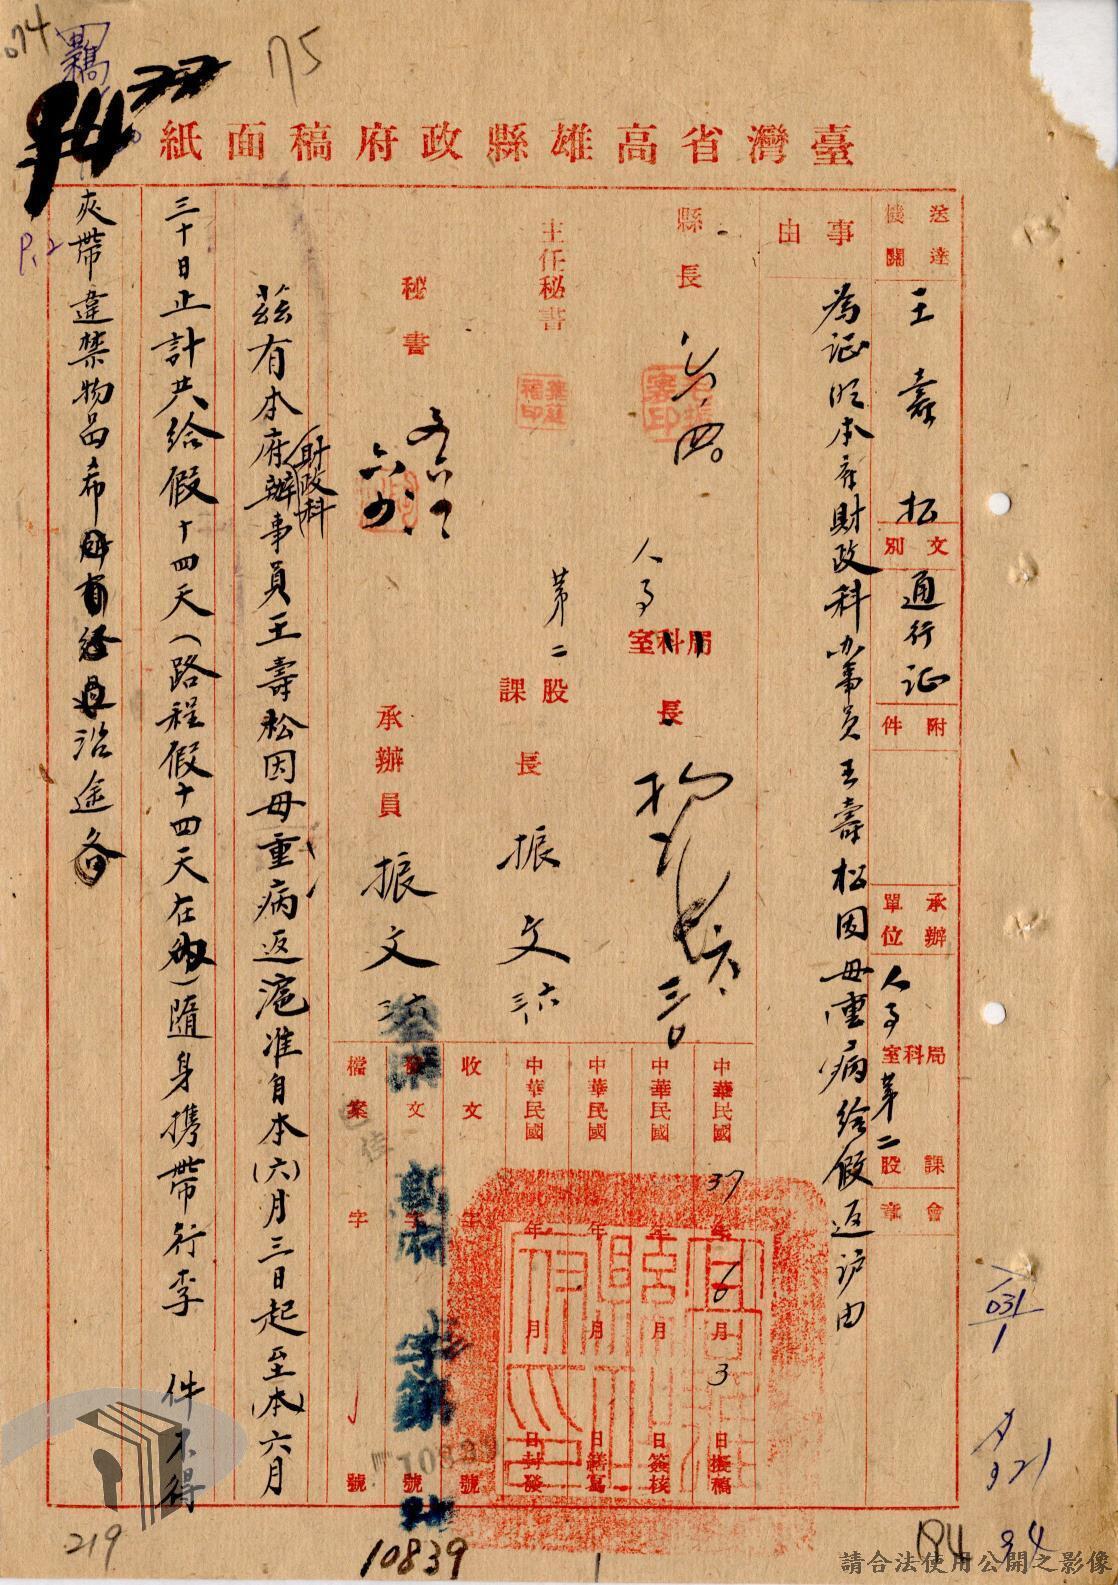 074
175
臺灣省高雄縣政府稿面紙
送達機關
王壽松
文別
通行证
附件
承辦單位
人事
室科局
第二
股課
會章
事由
為证明本府財政科办事员王壽松因母重病给假返沪由
縣長
主任秘書
秘書
人事
室科局長
第二
股課長
振文
承辦員
振文
中華民國37年6月3日擬稿
中華民國 年 月 日簽核
中華民國 年 月 日繕寫
中華民國 年 月 日封發
收文 字 號
發文 字 號
檔案 字 號
茲有本府財政科辦事員王壽松因母重病返滬准自本(六)月三日起至(本)六月
三十日止計共给假十四天(路程假十四天在內)隨身携帶行李 件不得
夾帶違禁物品希沿途各
P.2
10839
10839
219
031
1
921
184
94
請合法使用公開之影像